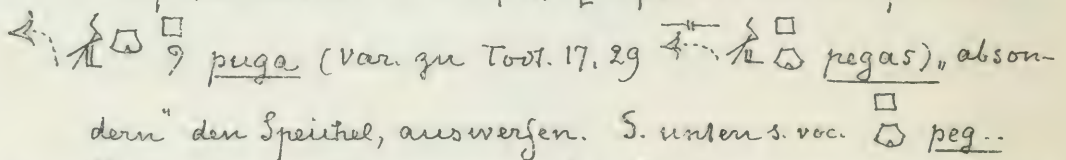 puga (Var. zu Todt. 17, 29 pegas) „abson-
dern“ den Speichel, auswerfen. S. unten s. voc. peg..